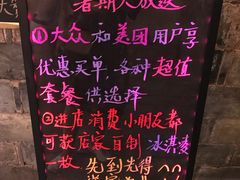 暑期大放送
①大众和美团用户享
优惠买单,各种超值
套餐供选择
②进店消费小朋友都
可获店家自制冰淇凌
一枚 先到先得^^